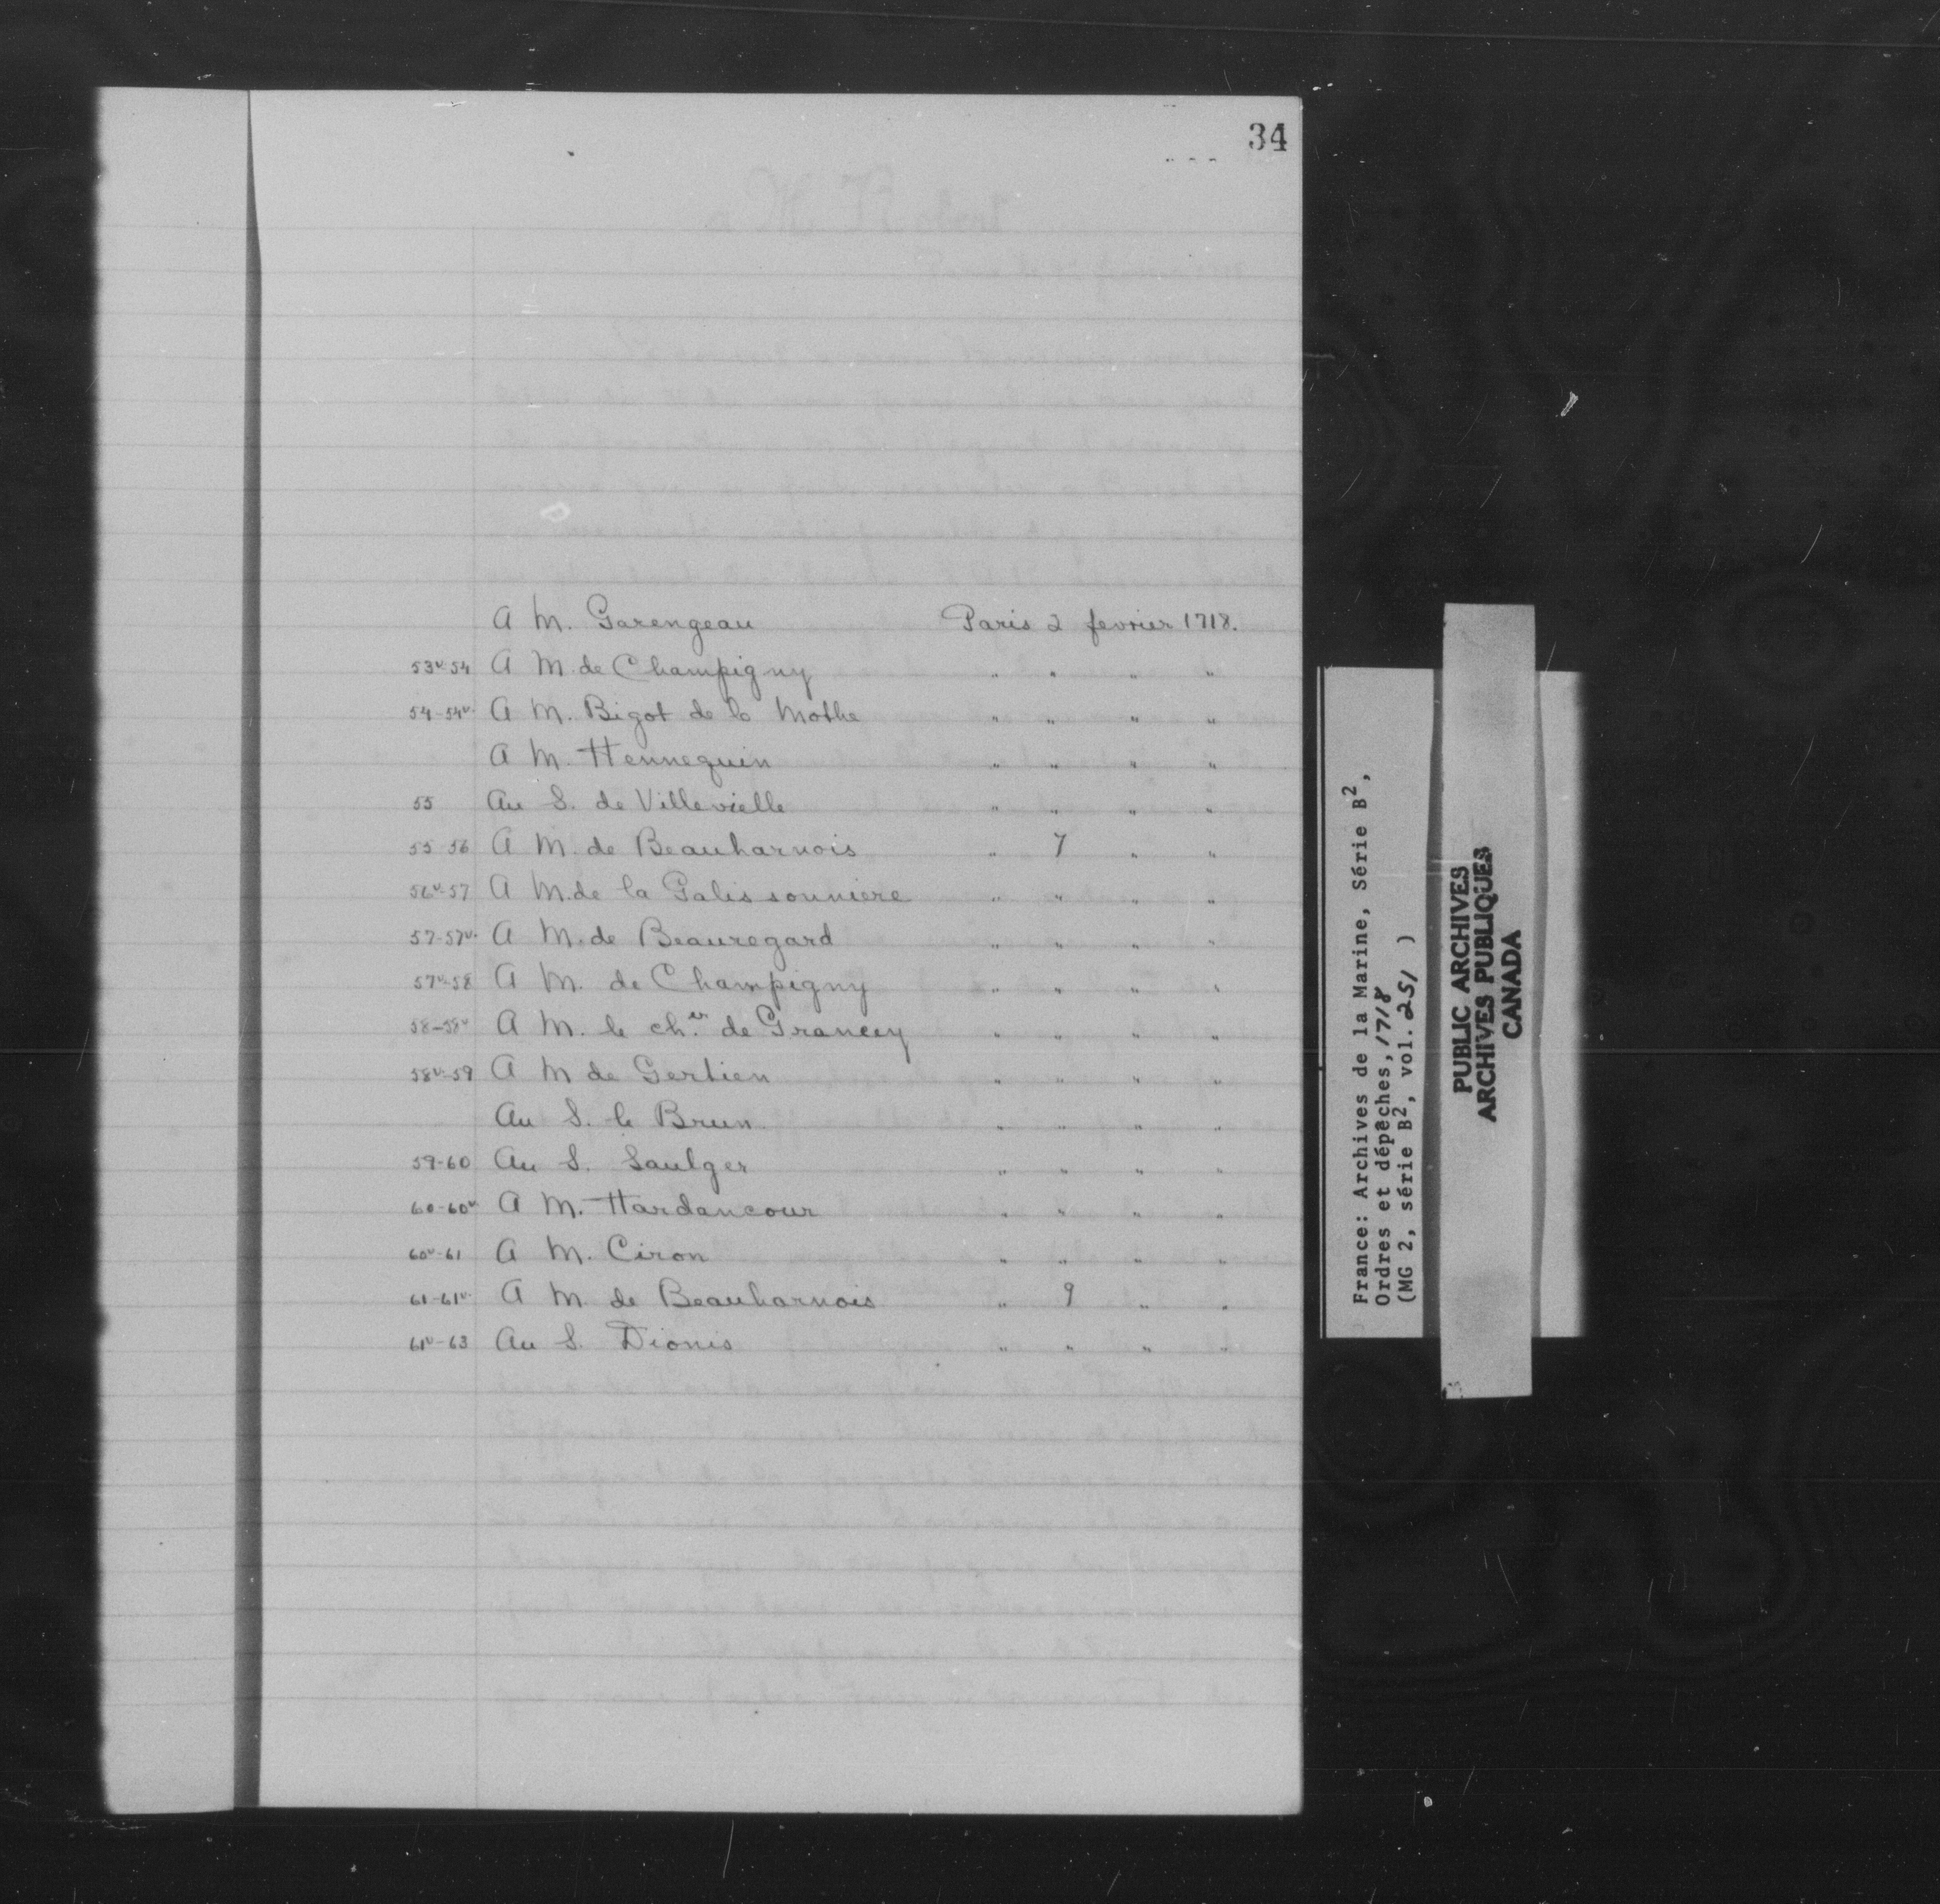 34
A M. Garengeau Paris 2 fevrier 1718.
53v-54 A M. de Champigny " " " "
54-54v. A M. Bigot de la Mothe " " " "
A M. Hennequin " " " "
55 Au S. de Villevielle " " " "
55-56 A M. de Beauharnois " 7 " "
56v-57 A M. de la Galissonniere " " " "
57-57v. A M. de Beauregard " " " "
57v-58 A M. de Champigny " " " "
58-58v A M. le ch.er de Grancey " " " "
58v-59 A M de Gertien " " " "
Au S. le Brun " " " "
59-60 Au S. Saulger " " " "
60-60v A M. Hardancour " " " "
60v-61 A M. Ciron " " " "
61-61v. A M. de Beauharnois " 9 " "
61v-63 Au S. Dionis " " " "
France: Archives de la Marine, Série B2,
Ordres et dépêches, 1718
(MG 2, série B2, vol. 251 )
PUBLIC ARCHIVES
ARCHIVES PUBLIQUES
CANADA